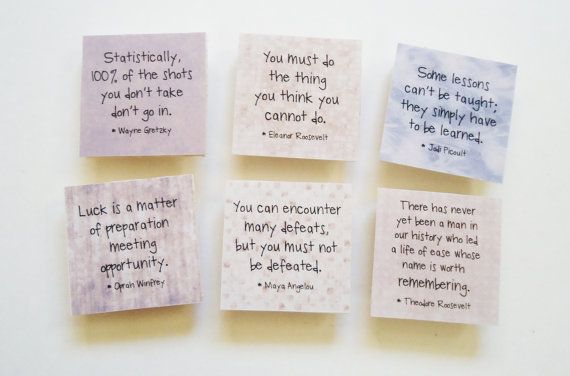 Statistically,
100% of the shots
you don't take
don't go in.
* Wayne Gretzky
You must do
the thing
you think you
cannot do.
* Eleanor Roosevelt
Some lessons
can't be taught;
they simply have
to be learned.
* Jodi Picoult
Luck is a matter
of preparation
meeting
opportunity.
* Oprah Winfrey
You can encounter
many defeats,
but you must not
be defeated.
* Maya Angelou
There has never
yet been a man in
our history who led
a life of ease whose
name is worth
remembering.
* Theodore Roosevelt